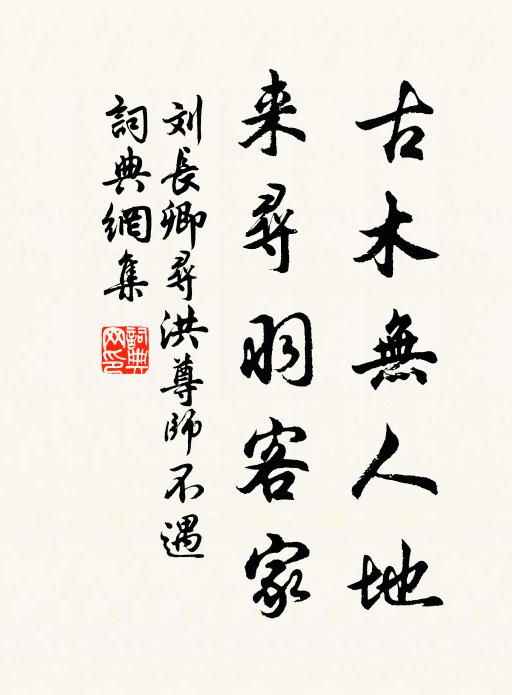 古木無人地
来尋羽客家
刘長卿尋洪尊師不遇
詞典網集
詞典網印